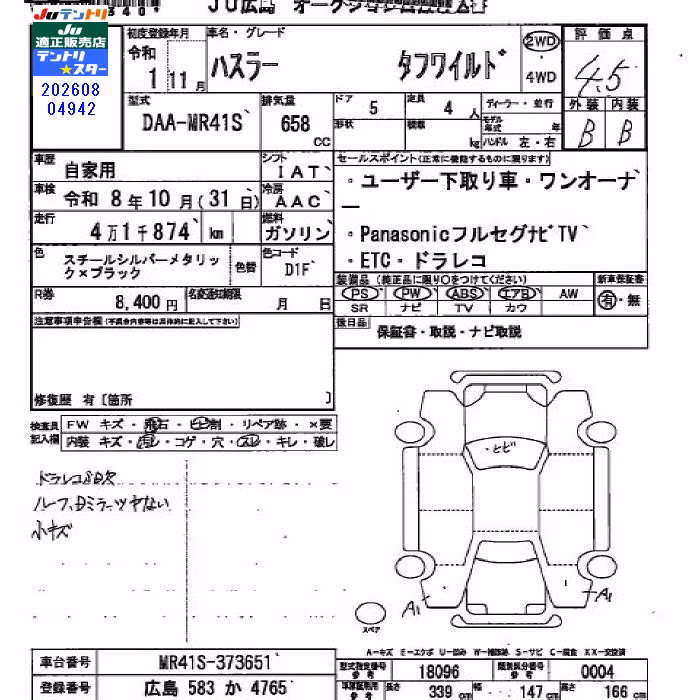 JU広島 オークション出品票
JU テントリ
JU
適正販売店
テントリ
★スター
202608
04942
初度登録年月 車名・グレード
令和
1 11月
ハスラー タフワイルド
2WD
4WD
評価点
4.5
外装 内装
B B
型式
DAA-MR41S
排気量
658
cc
ドア 5
定員 4 人
ディーラー・並行
形状
積載
kg
モデル年式 年
ハンドル 左・右
車歴 自家用
シフト IAT
車検 令和 8年10月(31日)
冷房 AAC
走行 4万1千874 km
燃料 ガソリン
セールスポイント(正常に機能するものに限ります)
・ユーザー下取り車・ワンオーナ
ー
・PanasonicフルセグナビTV
・ETC・ドラレコ
色 スチールシルバーメタリッ
ク×ブラック
色替
色コード
D1F
R券 8,400円
名変通知期限 月 日
装備品 (純正品に限り○をつけてください)
PS PW ABS エアB AW
SR ナビ TV カワ
新車保証書
有・無
後日品 保証書・取説・ナビ取説
注意事項申告欄(不具合内容等は具体的に記入して下さい)
修復歴 有〔箇所 〕
検査員
記入欄
FW キズ・飛石・ヒビ割・リペア跡・×要
内装 キズ・汚レ・コゲ・穴・スレ・キレ・破レ
ドラレコSDR
ルーフ,Dミラーツヤない
小キズ
・ヒビ
A1
A1
スペア
A-キズ E-エクボ U-凹み W-補修跡 S-サビ C-腐食 XX-交換済
車台番号 MR41S-373651
登録番号 広島 583 か 4765
型式指定番号
参考
18096
類別区分番号
参考
0004
参考
長さ 339 cm
幅 147 cm
高さ 166 cm